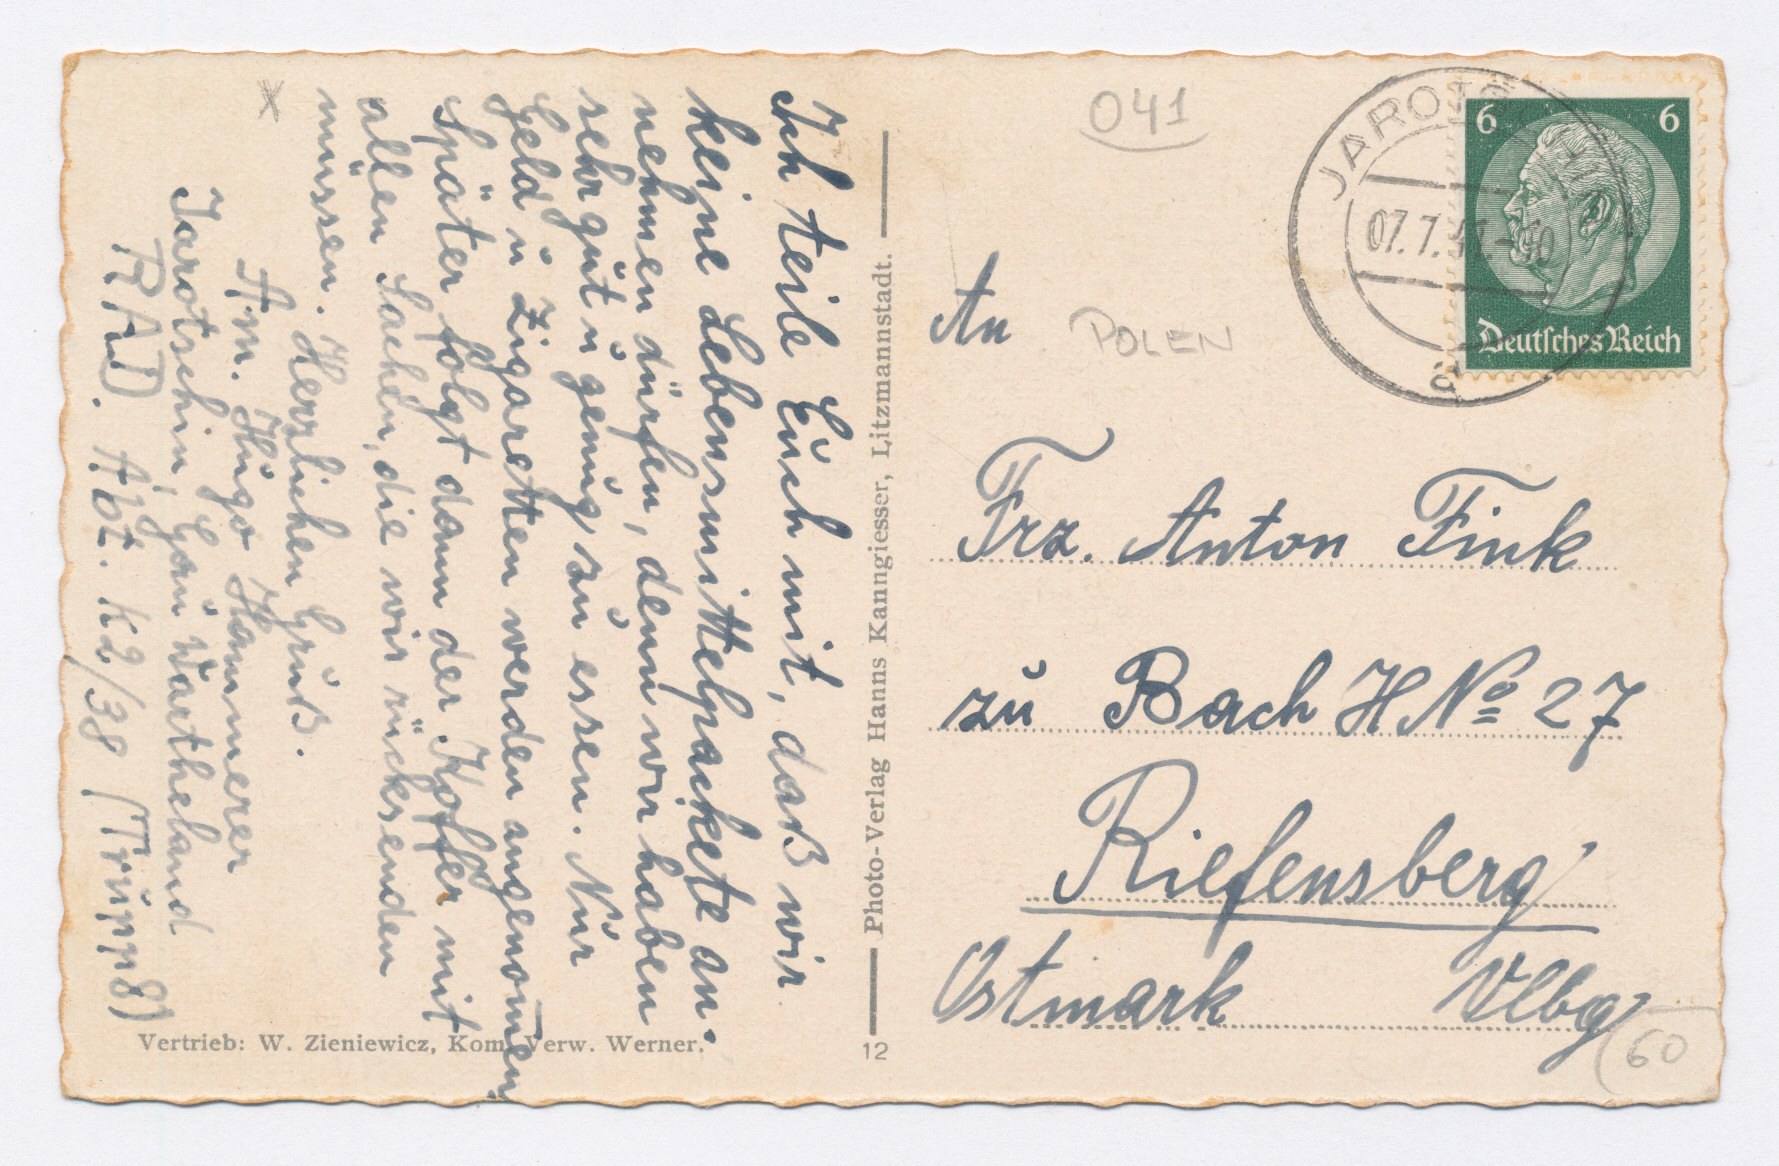 Ich teile Euch mit, daß wir
keine Lebensmittelpackete an-
nehmen dürfen, denn wir haben
sehr gut u genug zu essen. Nur
Geld u Zigaretten werden angenomen
Später folgt dann der Koffer mit
allen Sachen, die wir rücksenden
müssen. Herzlichen Gruß.
A. m. Hugo Hammerer
Jarotschin, Gau Wartheland
RAD. Abt. K2/38 (Trupp 8)
Vertrieb: W. Zieniewicz, Kom. Verw. Werner.
Photo-Verlag Hanns Kanngiesser, Litzmannstadt.
12
041
POLEN
JAROTSCHIN
07.7.41.-10
a
6 6
Deutsches Reich
An
Frz. Anton Fink
zu Bach H No 27
Riefensberg
Ostmark Vlbg
60